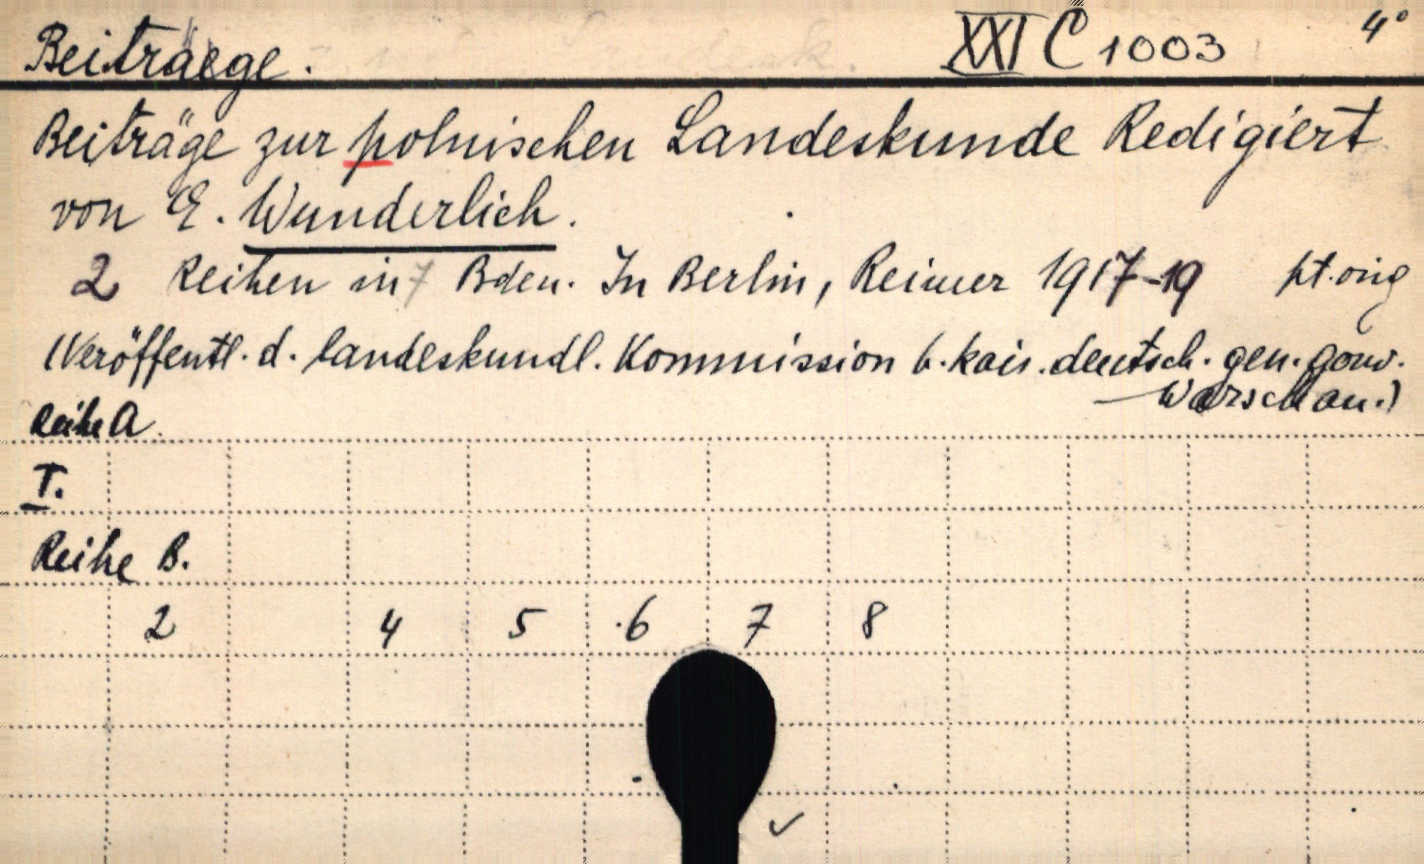 Beitraege. XXI C 1003 4°
Beiträge zur polnischen Landeskunde Redigiert
von E. Wunderlich.
2 Reihen in 7 Bden. In Berlin, Reimer 1917-19 pt. orig
(Veröffentl. d. landeskundl. Kommission b. kais. deutsch. gen. gouv.
Warschau.)
Reihe A.
I.
Reihe B.
2 4 5 6 7 8